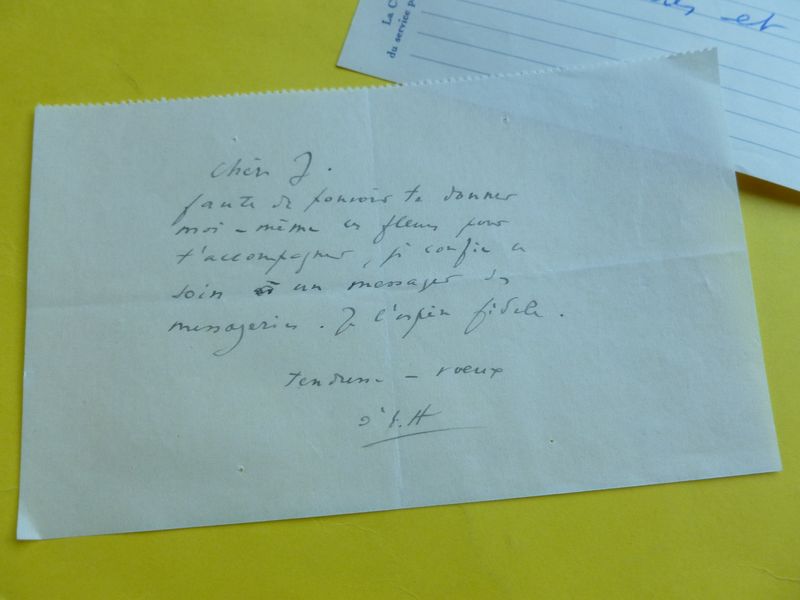 La C
du service p
et
Chère J.
faute de pouvoir te donner
moi-même ces fleurs pour
t'accompagner, je confie ce
soin à un messager des
messageries. Je l'espère fidèle.
tendresse - voeux